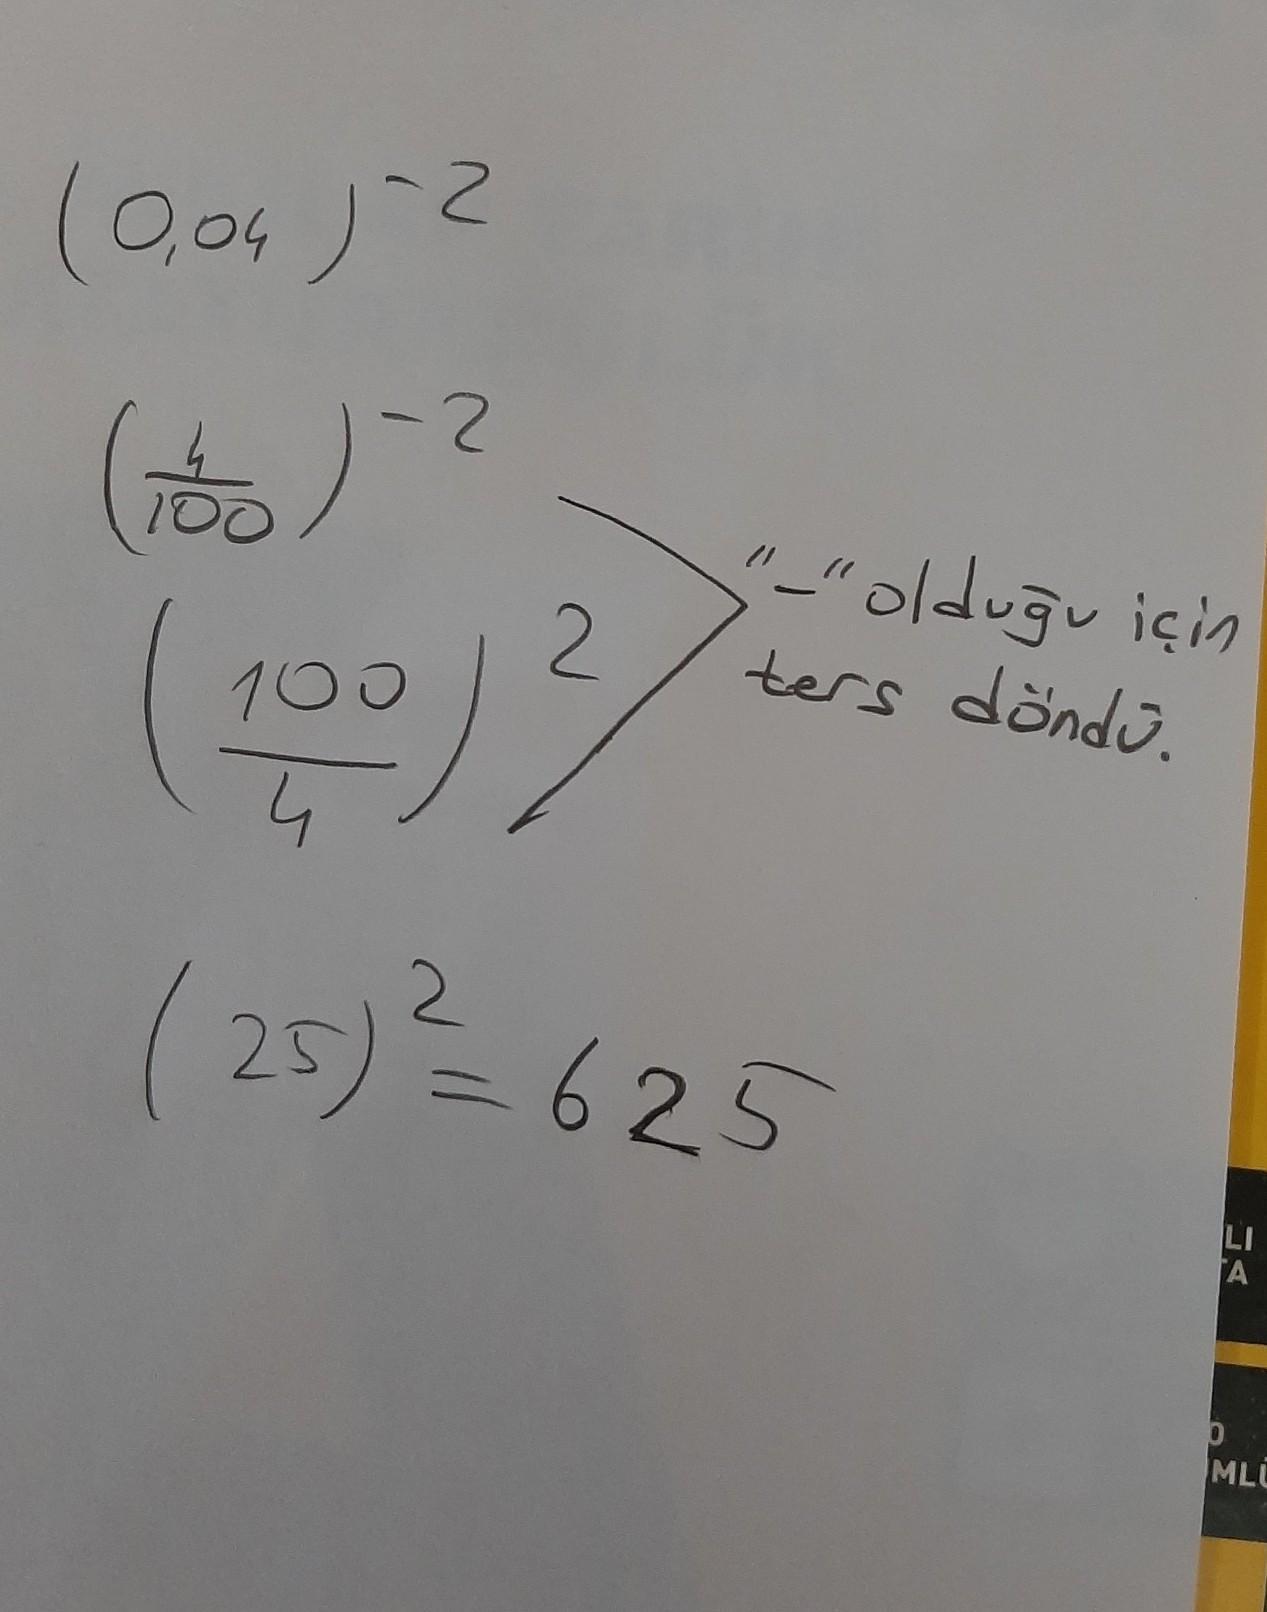 (0,04)⁻²
(4/100)⁻²
"-" olduğu için
ters döndü.
(100/4)²
(25)² = 625
LI
TA
O
MLÜ